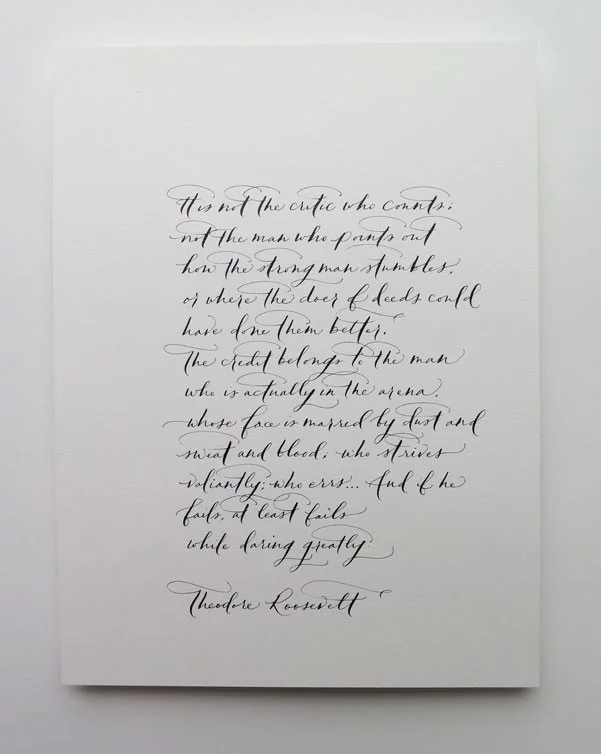 It is not the critic who counts;
not the man who points out
how the strong man stumbles,
or where the doer of deeds could
have done them better.
The credit belongs to the man
who is actually in the arena,
whose face is marred by dust and
sweat and blood; who strives
valiantly; who errs... And if he
fails, at least fails
while daring greatly.
Theodore Roosevelt